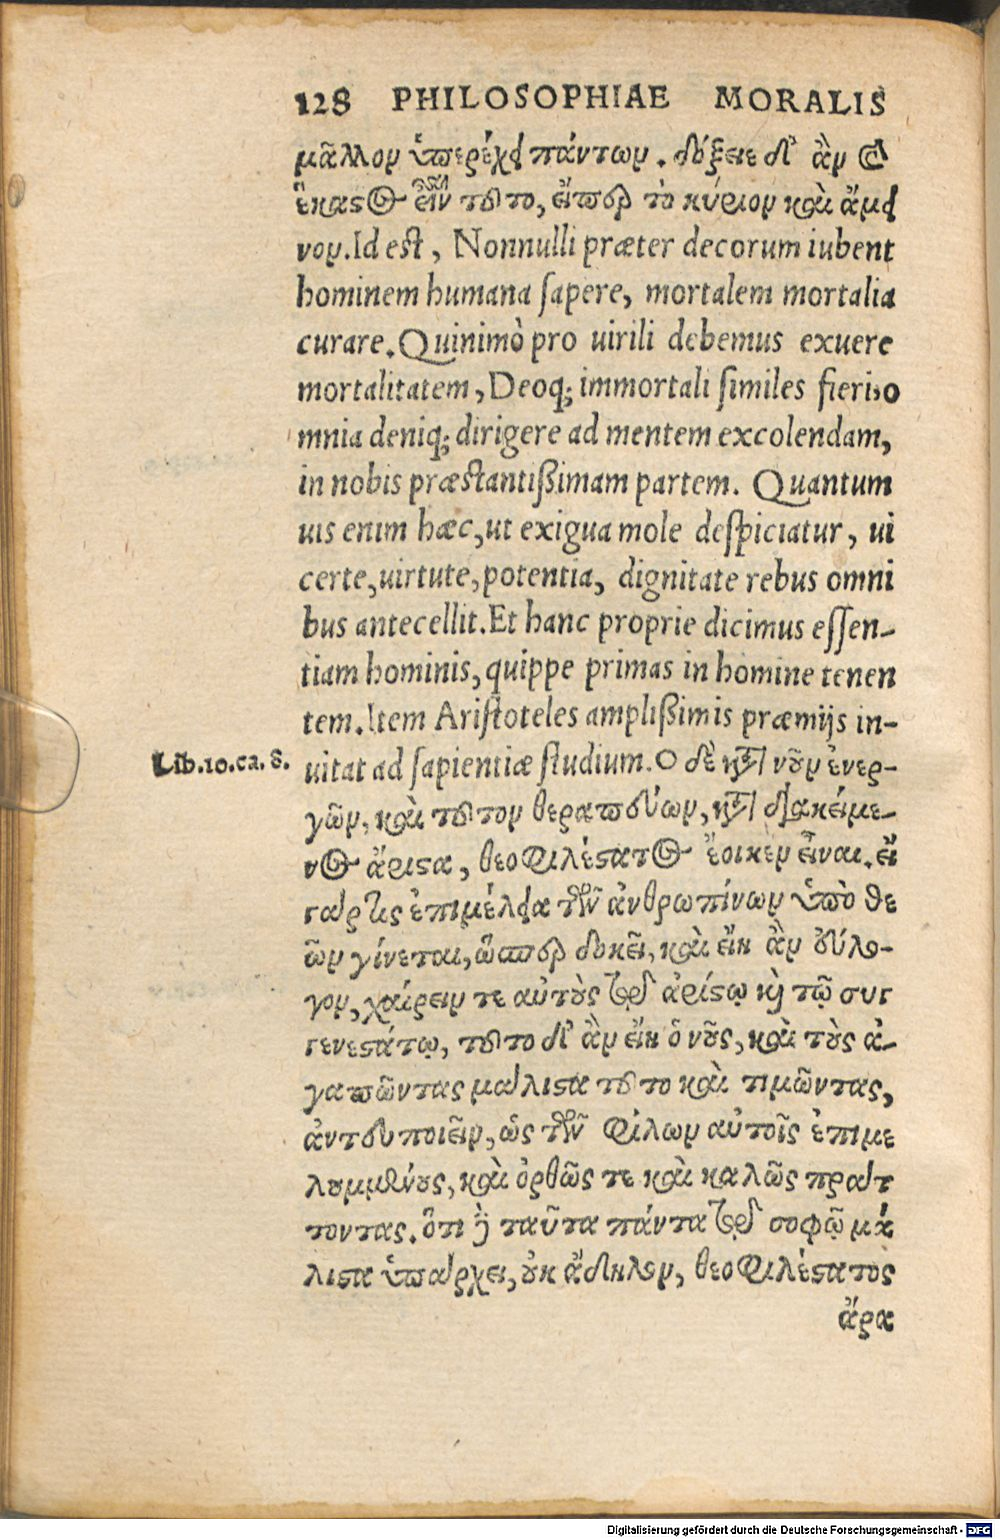 128 PHILOSOPHIAE MORALIS
μᾶλλον ὑπερέχει πάντων. δόξειε δ' ἂν καὶ
ἕκαστος εἶναι τοῦτο, εἴπερ τὸ κύριον καὶ ἄμει
νον. Id est, Nonnulli præter decorum iubent
hominem humana sapere, mortalem mortalia
curare. Quinimò pro uirili debemus exuere
mortalitatem, Deoq; immortali similes fieri, o
mnia deniq; dirigere ad mentem excolendam,
in nobis præstantißimam partem. Quantum
uis enim hæc, ut exigua mole despiciatur, ui
certe, uirtute, potentia, dignitate rebus omni
bus antecellit. Et hanc proprie dicimus essen-
tiam hominis, quippe primas in homine tenen
tem. Item Aristoteles amplißimis præmijs in-
Lib.10.ca.8.
uitat ad sapientiæ studium. Ο δὲ κατὰ νοῦν ἐνερ-
γῶν, καὶ τοῦτον θεραπεύων, καὶ διακείμε-
νος ἄριστα, θεοφιλέστατος ἔοικεν εἶναι. εἰ
γάρ τις ἐπιμέλεια τῶν ἀνθρωπίνων ὑπὸ θε
ῶν γίνεται, ὥσπερ δοκεῖ, καὶ εἴη ἂν εὔλο-
γον, χαίρειν τε αὐτοὺς τῷ ἀρίστῳ καὶ τῷ συγ
γενεστάτῳ, τοῦτο δ' ἂν εἴη ὁ νοῦς, καὶ τοὺς ἀ-
γαπῶντας μάλιστα τοῦτο καὶ τιμῶντας,
ἀντευποιεῖν, ὡς τῶν φίλων αὐτοῖς ἐπιμε
λουμένους, καὶ ὀρθῶς τε καὶ καλῶς πράτ
τοντας. ὅτι δὲ ταῦτα πάντα τῷ σοφῷ μά
λιστα ὑπάρχει, οὐκ ἄδηλον, θεοφιλέστατος
ἄρα
Digitalisierung gefördert durch die Deutsche Forschungsgemeinschaft - DFG